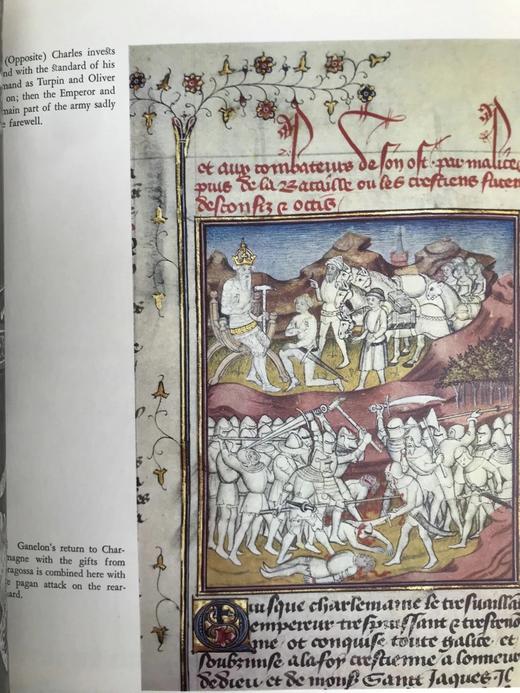 (Opposite) Charles invests
nd with the standard of his
mand as Turpin and Oliver
on; then the Emperor and
main part of the army sadly
farewell.
et aux combateurs de son ost. par malice
puis de la Bataille ou les crestiens furent
desconfiz & occis
Ganelon's return to Char-
magne with the gifts from
ragossa is combined here with
e pagan attack on the rear-
uard.
Qusque charlemaine le tresvaillant
empereur trespuissant & tresreno
me ot conquise toute galice et
soubzmise a la foy crestienne a lonneur
de dieu et de mons. Saint Jaques. Il